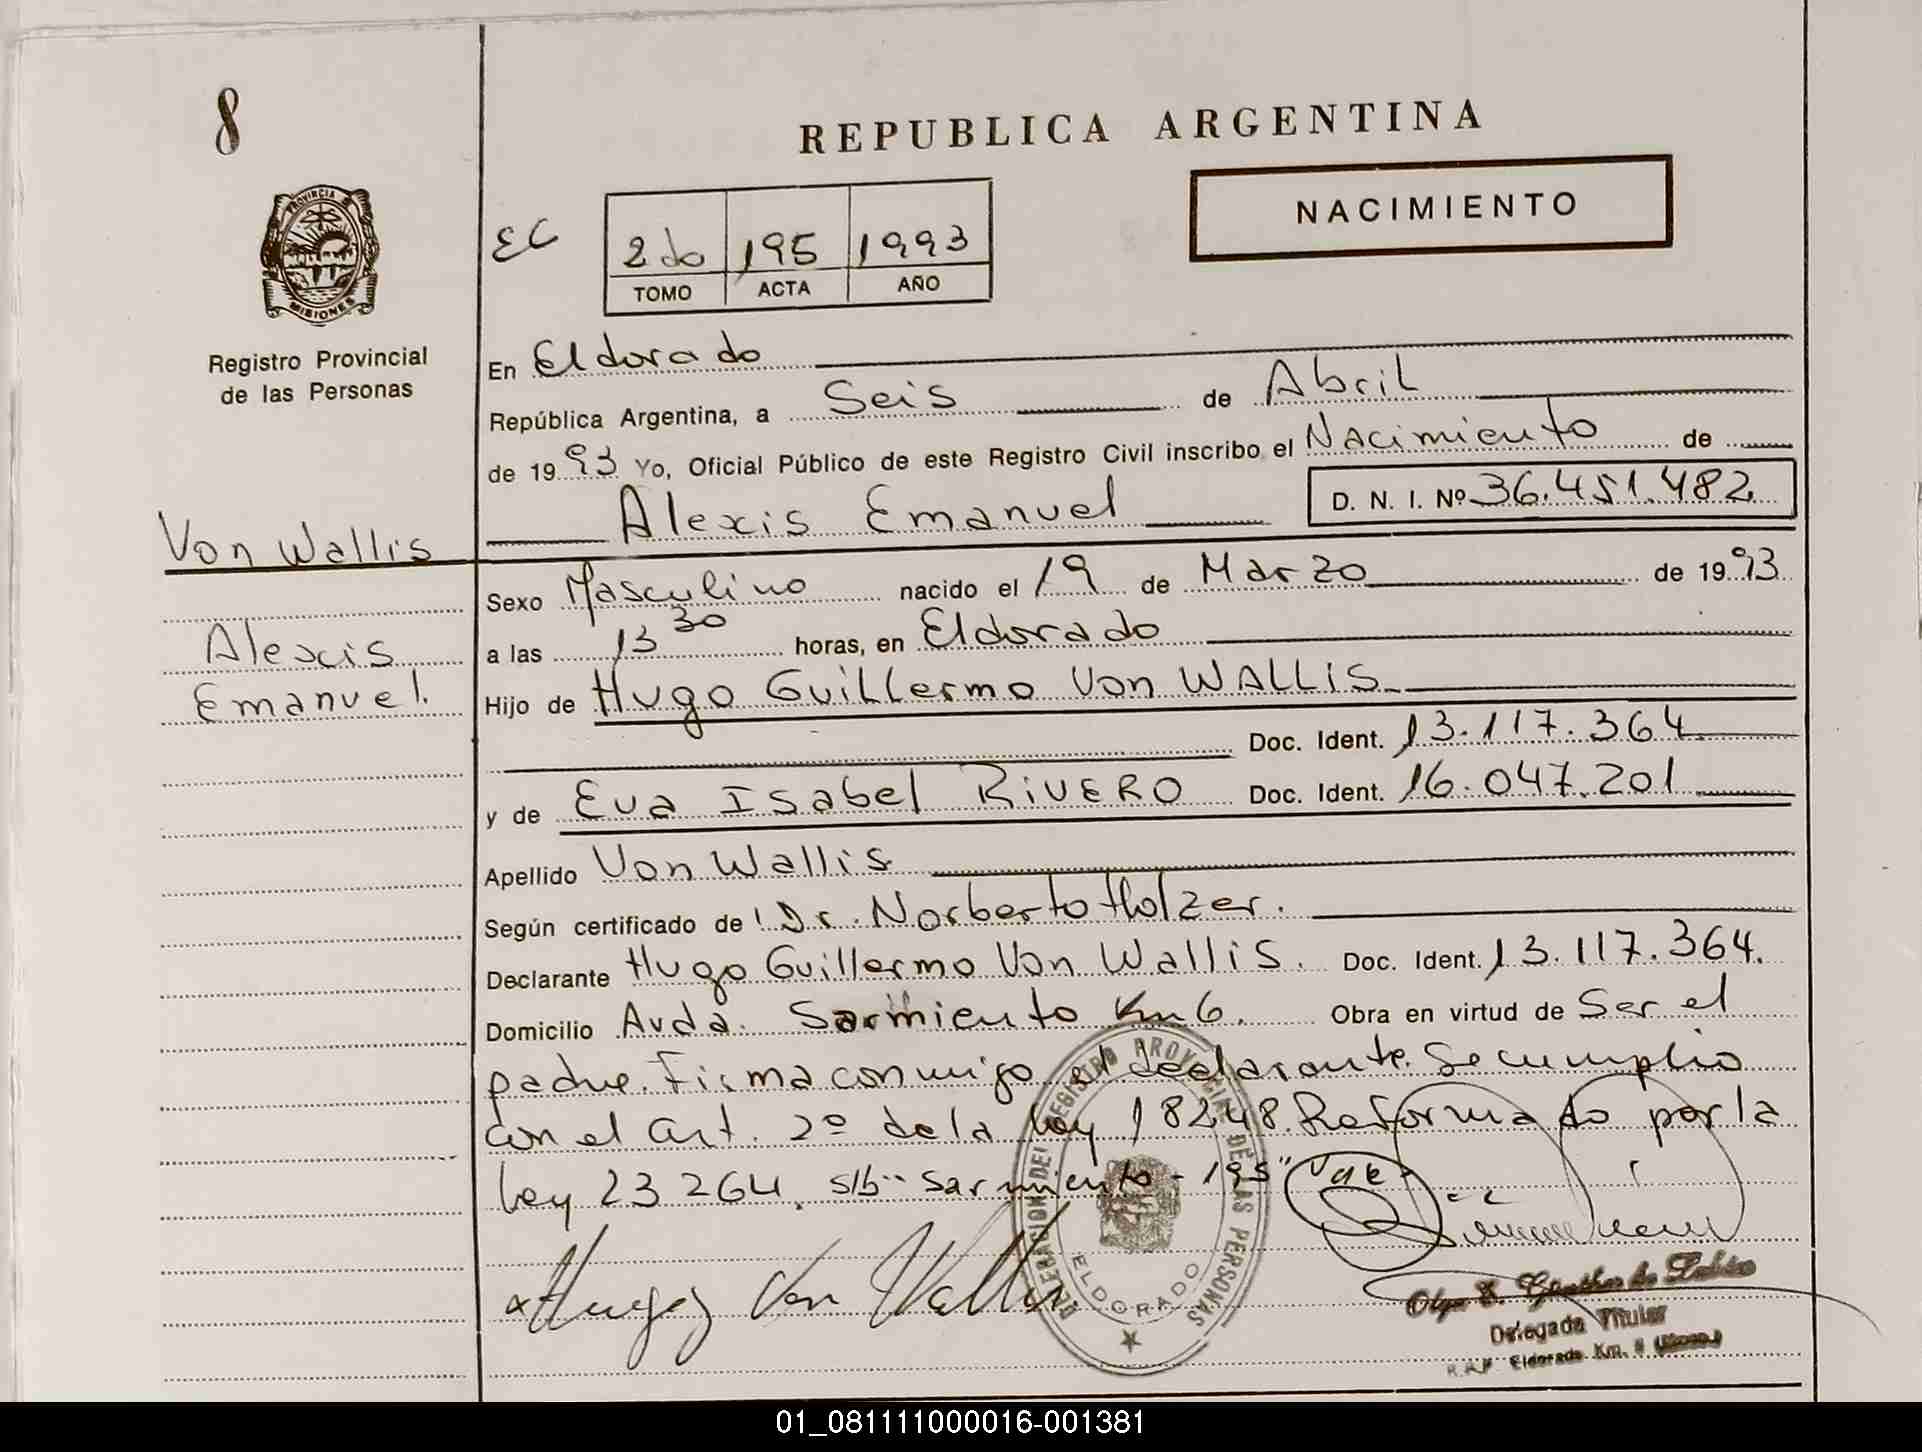 8
REPUBLICA ARGENTINA
NACIMIENTO
PROVINCIA DE
MISIONES
Registro Provincial
de las Personas
EC
2do 195 1993
TOMO ACTA AÑO
En Eldorado
República Argentina, a Seis de Abril
de 1993 Yo, Oficial Público de este Registro Civil inscribo el Nacimiento de
Alexis Emanuel D. N. I. Nº 36.451.482
Von Wallis
Alexis
Emanuel.
Sexo Masculino nacido el 19 de Marzo de 1993
a las 13 30 horas, en Eldorado
Hijo de Hugo Guillermo Von WALLIS
Doc. Ident. 13.117.364
y de Eva Isabel RIVERO Doc. Ident. 16.047.201
Apellido Von Wallis
Según certificado de Dr. Norberto Holzer.
Declarante Hugo Guillermo Von Wallis. Doc. Ident. 13.117.364.
Domicilio Avda. Sarmiento Km 6. Obra en virtud de Ser el
padre. Firma conmigo el declarante. Se cumplio
con el art. 2º de la ley 18248. Reformado por la
ley 23264. s/b " Sarmiento - 195" Vale
Hugo Von Wallis
DELEGACION DEL REGISTRO PROVINCIAL DE LAS PERSONAS
ELDORADO
Olga E. Günther de
Delegada Titular
Eldorado Km.
01_081111000016-001381